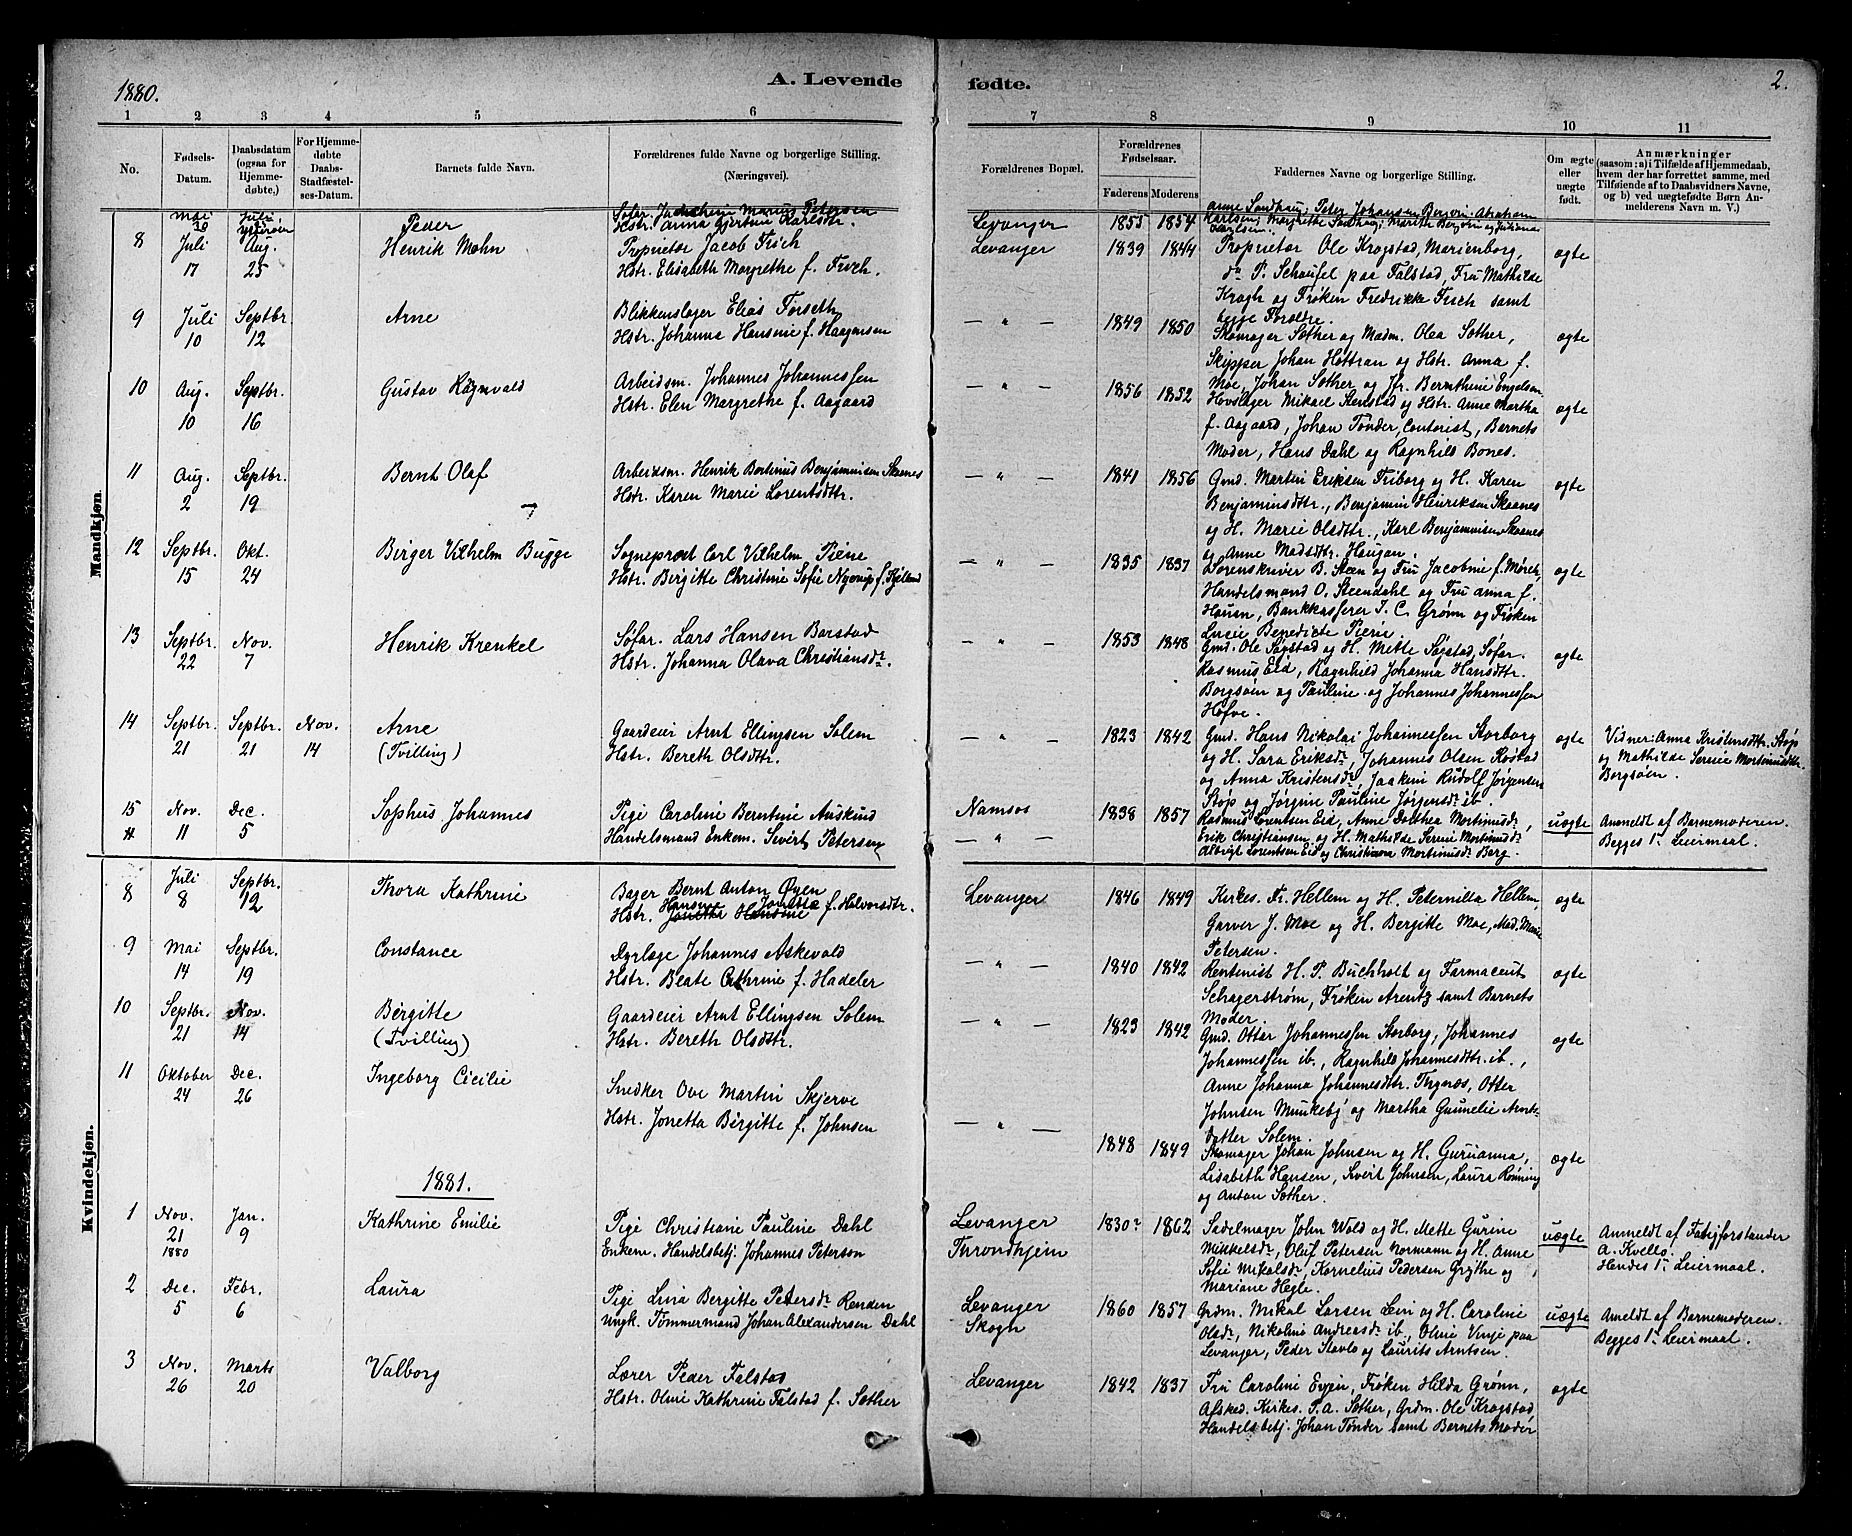 1880.
A. Levende fødte.
2.
1 2 3 4 5 6 7 8 9 10 11
No.
Fødsels-Datum.
Daabsdatum (ogsaa for Hjemmedøbte,)
For Hjemmedøbte Daabs-Stadfæstelses-Datum.
Barnets fulde Navn.
Forældrenes fulde Navne og borgerlige Stilling. (Næringsvei).
Forældrenes Bopæl.
Forældrenes Fødselsaar.
Faderens Moderens
Faddernes Navne og borgerlige Stilling.
Om ægte eller uægte født.
Anmærkninger (saasom: a) i Tilfælde af Hjemmedaab, hvem der har forrettet samme, med Tilføiende af to Daabsvidners Navne, og b) ved uægtefødte Børn Anmelderens Navn m. V.)
Mandkjøn.
Mai 30 Juli Peder
Hstr. Anna
Levanger 1853 1854
Anne Sandhaug; Peter Johansen Bergvin. Abraham
Karlsen; Margrethe Sandhaug;
8 Juli 17 Aug. 25 Henrik Mohn
Proprietær Jacob Tisch
Hstr. Elisabeth Margrethe f. Tisch.
Levanger 1839 1844
Proprietær Ole Krogstad, Marienborg,
do P. Schaufel paa Falstad, Fru Mathilde
Krogh og Frøken Fredrikke Tisch samt
begge Foreldre.
ægte
9 Juli 10 Septbr. 12 Arne
Blikkenslager Elias Forseth
Hstr. Johanna Hansine f. Haagensen
— " — 1849 1850
Skomager Sother og Madm. Olea Sother,
Skipper Johan Hottran og Hstr. Anna f.
Moe, Johan Sother og Jfr. Bernthine Engelsen
ægte
10 Aug. 10 Septbr. 16 Gustav Ragnvald
Arbeidsm. Johannes Johannessen
Hstr. Elen Margrethe f. Aagaard
— " — 1856 1852
Hovslager Mikael Stenstad og Hstr. Anne Martha
f. Aagaard, Johan Tønder, Contorist, Barnets
Moder, Hans Dahl og Ragnhild Bones.
ægte
11 Aug. 2 Septbr. 19 Bernt Olaf
Arbeidsm. Henrik Bertinus Benjaminsen Skaanes
Hstr. Karen Marie Lorentsdttr.
— " — 1841 1856
Gmd. Martin Eriksen Friborg og H. Karen
Benjaminsdttr., Benjamin Henriksen Skaanes
og H. Marie Olsdttr., Karl Benjaminsen Skaanes
og Anne Madsdttr. Haugan.
ægte
12 Septbr. 15 Okt. 24 Birger Vilhelm Bugge
Sogneprest Carl Vilhelm Piene
Hstr. Birgitte Christine Sofie Nyerup f. Kjelland
— " — 1835 1837
Sorenskriver B. Steen og Fru Jacobine f. Mørch,
Handelsmand O. Steendahl og Fru Anna f.
Hausn, Bankkasserer J. C. Grønn og Frøken
Lucie Benedicte Piene.
ægte
13 Septbr. 22 Nov. 7 Henrik Krenkel
Søfar. Lars Hansen Barstad
Hstr. Johanna Olava Christiansdr.
— " — 1853 1848
Gmd. Ole Søgstad og H. Mette Søgstad, Søfar.
Rasmus Eid, Ragnhild Johanna Hansdttr.
Borgsøen og Pauline og Johannes Johannessen
Hofve.
ægte
14 Septbr. 21 Septbr. 21 Nov. 14 Arne (Tvilling)
Gaardeier Arnt Ellingsen Solem
Hstr. Bereth Olsdttr.
— " — 1823 1842
Gmd. Hans Nikolai Johannessen Storborg
og H. Sara Eriksdr., Johannes Olsen Rostad
og Anna Kristensdr., Joakim Rudolf Jørgensen
Støp og Jørgine Pauline Jørgensdr. ib.
ægte
Vidner: Anna Kristensdttr. Støp
og Mathilde Serine Mortinusdttr.
Borgsøen.
15 Nov. 11 Dec. 5 Sophus Johannes
Pige Caroline Berntine Auskind
Handelsmand Enkem. Sivert Petersen
Namsos 1838 1857
— " —
Rasmus Lorentsen Eid, Anne Dorthea Mortinusdr.,
Erik Christiansen og H. Mathilde Serine Mortinusdr.
Albrigt Lorentsen Eid og Christianna Mortinusdr. Borg.
uægte
Anmeldt af Barnemoderen.
Begges 1ste Leiermaal.
Kvindekjøn.
8 Juli 8 Septbr. 12 Thora Kathrine
Bager Bernt Anton Øyen
Hansine Jonette
Hstr. Jonetta Hansine f. Halvorsdttr.
Levanger 1846 1849
Kirkes. Fr. Hellem og H. Peternilla Hellem,
Garver J. Moe og H. Bergitte Moe, Mad. Marie
Petersen.
ægte
9 Mai 14 Septbr. 19 Constance
Dyrlæge Johannes Askevold
Hstr. Beate Cathrine f. Hadeler
— " — 1840 1842
Rentenist H. P. Buchholt og Farmaceut
Schagerstrøm, Frøken Arentz samt Barnets
Moder.
ægte
10 Septbr. 21 Nov. 14 Birgitte (Tvilling)
Gaardeier Arnt Ellingsen Solem
Hstr. Bereth Olsdttr.
— " — 1823 1842
Gmd. Otter Johannessen Storborg, Johannes
Johannessen ib., Ragnhild Johannesdttr. ib.,
Anne Johanna Johannesdttr. Thynæs, Otter
Johnsen Munkeby og Martha Gunnelie Arnt-
datter Solem.
ægte
11 Oktober 24 Dec. 26 Ingeborg Cicilie
Snedker Ove Martin Skjerve
Hstr. Jonetta Birgitte f. Johnsen
— " — 1848 1849
Skomager Johan Johnsen og H. Guruanna,
Lisabeth Hansen, Sivert Johnsen, Laura Rønning
og Anton Sother.
ægte
1881.
1 Nov. 21 1880 Jan. 9 Kathrine Emilie
Pige Christiane Pauline Dahl
Enkem. Handelsbetj. Johannes Peterson
Levanger 1830? 1862
Throndhjem
Sadelmager John Wold og H. Mette Gurine
Mikkelsdr., Oluf Petersen Normann og H. Anne
Sofie Mikalsdr., Kornelius Pedersen Grythe og
Mariane Hegle.
uægte
Anmeldt af Fattigforstander
A. Kvello.
Hendes 1ste Leiermaal.
2 Dec. 5 Febr. 6 Laura
Pige Lina Bergitte Petersdr. Renden
Ungk. Tømmermand Johan Alexandersen Dahl
Levanger 1860 1857
Skogn
Grdm. Mikal Larsen Lein og H. Caroline
Olsdr., Nikoline Andreasdr. ib., Oline Vinje paa
Levanger, Peder Slavlo og Laurits Arntsen.
uægte
Anmeldt af Barnemoderen.
Begges 1ste Leiermaal.
3 Nov. 26 Marts 20 Valborg
Lærer Peder Falstad
Hstr. Oline Kathrine Falstad f. Sother
Levanger 1842 1837
Fru Caroline Evjen, Frøken Hilda Grønn,
Afsked. Kirkes. P. A. Sother, Grdm. Ole Krogstad
Handelsbetj. Johan Tønder samt Barnets Moder
ægte